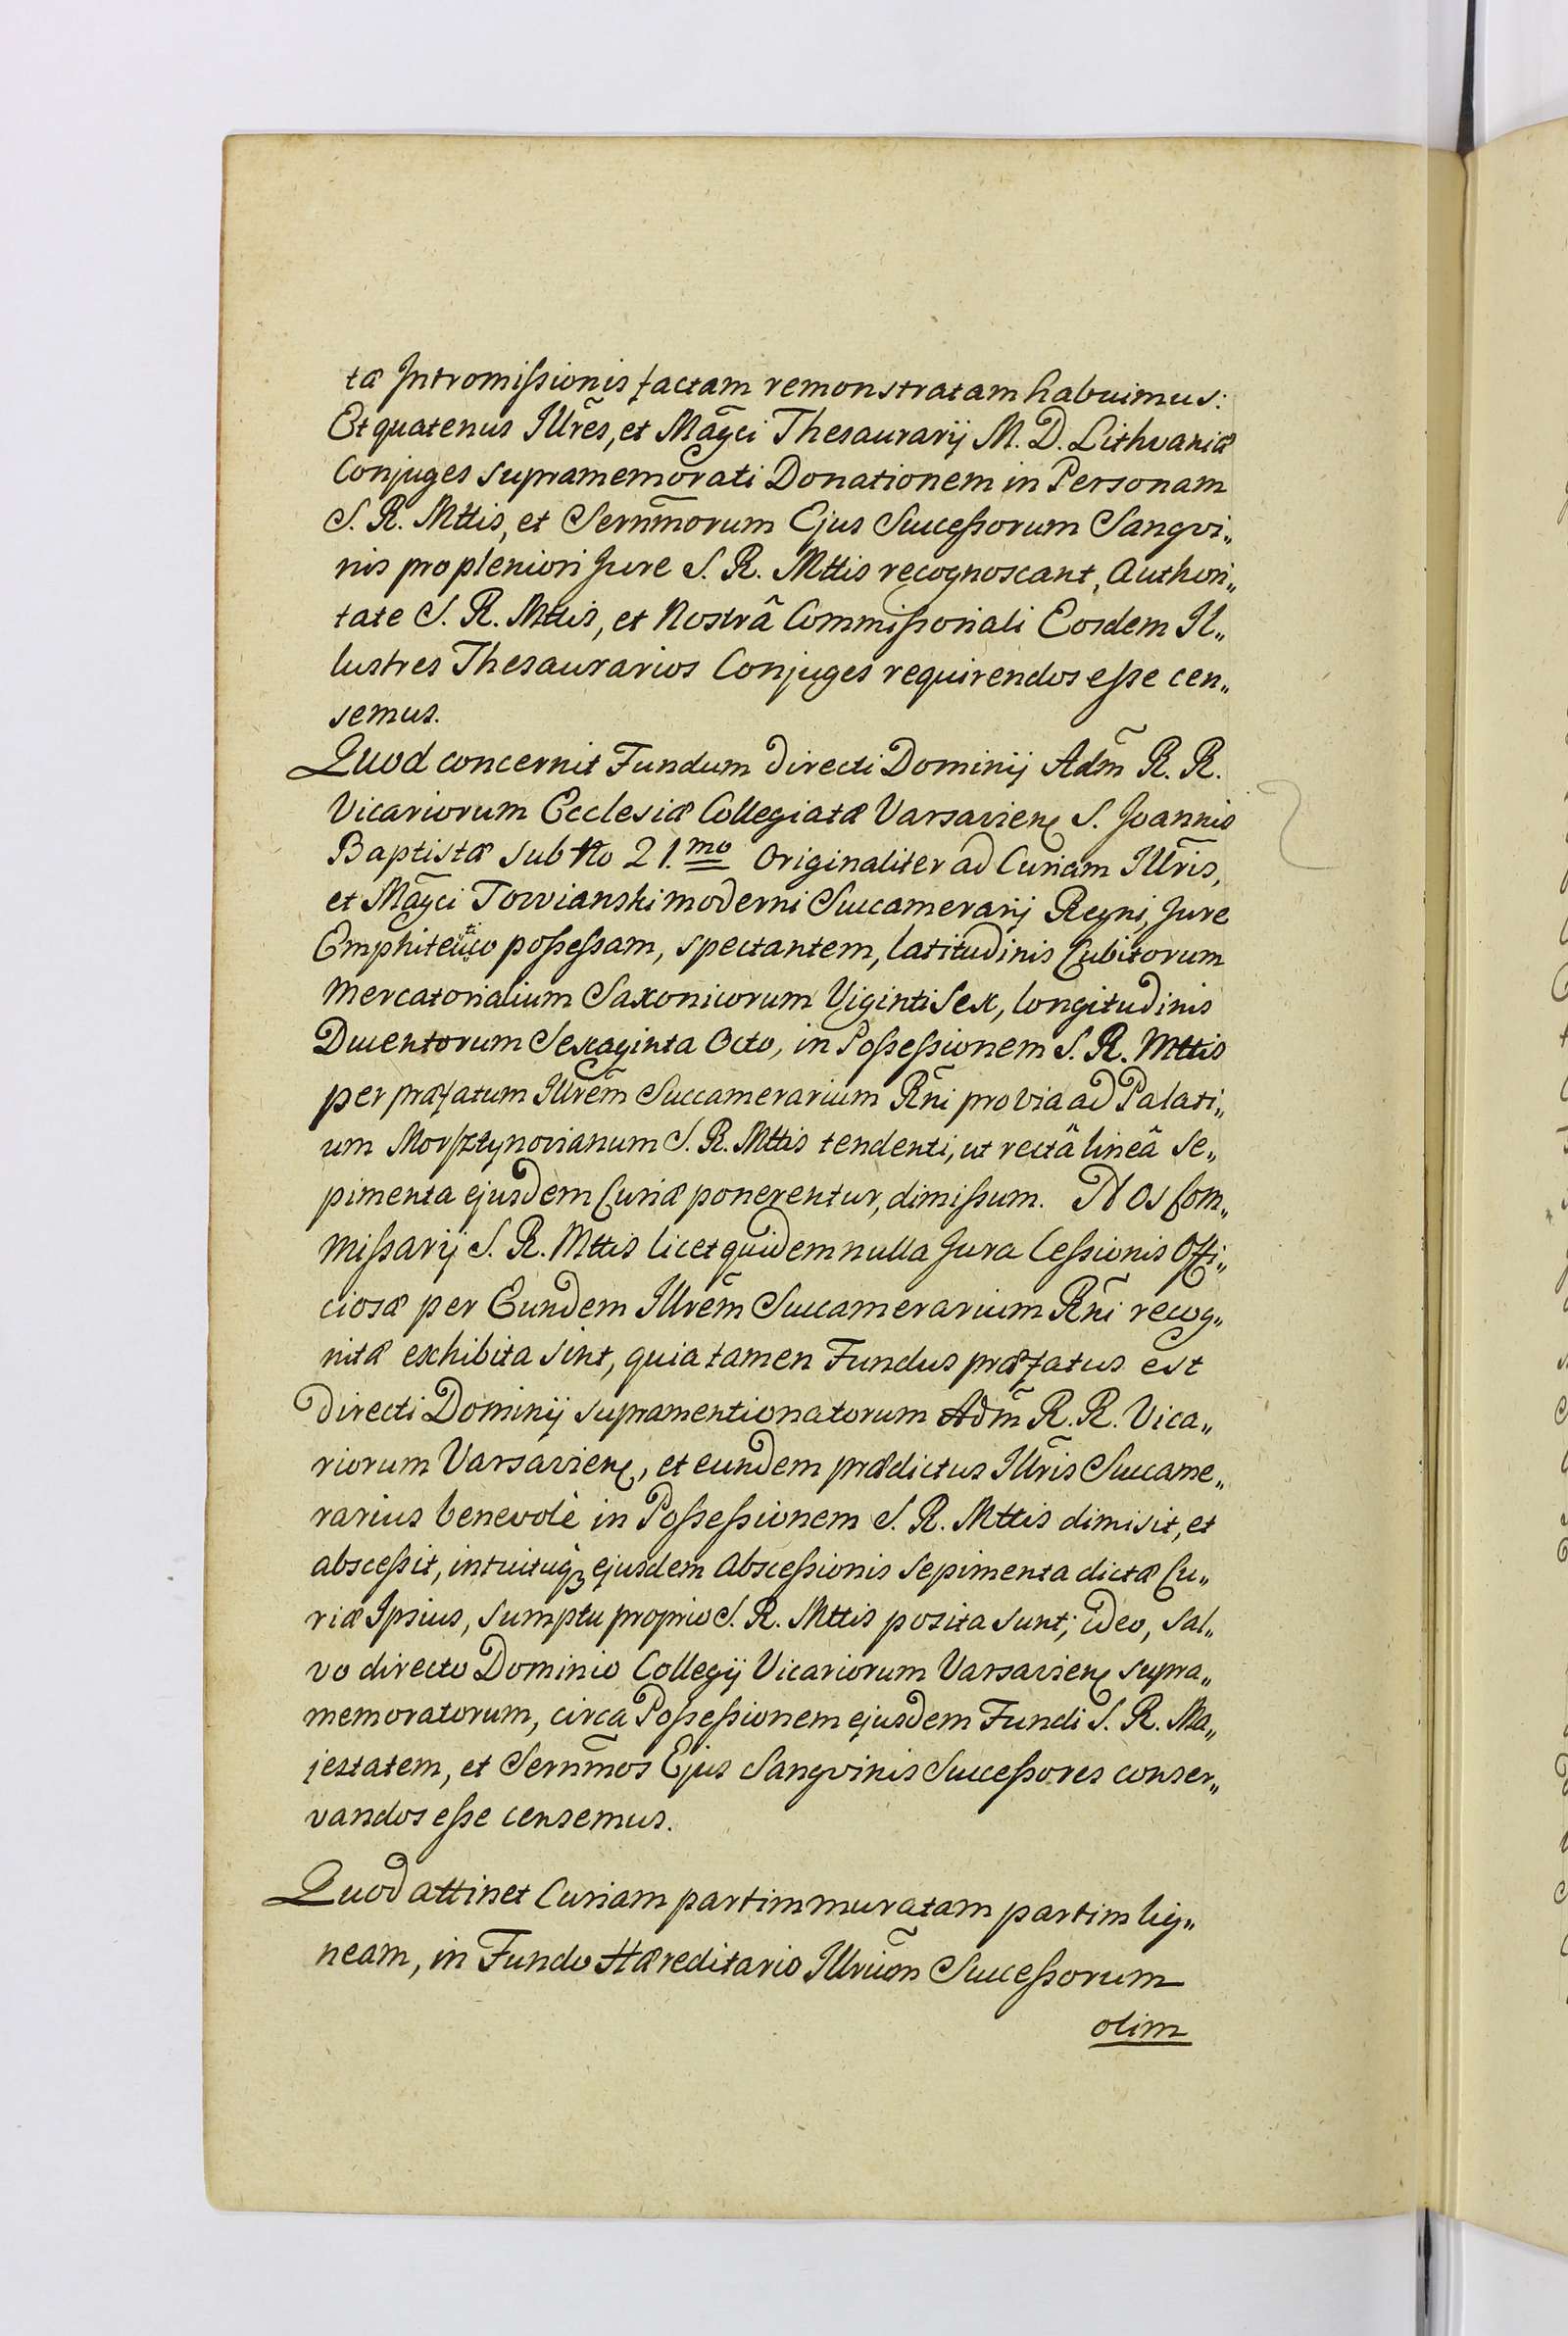 tæ Intromißionis factam remonstratam habuimus:
Et quatenus Illr̃es, et Mag̃ci Thesaurarij M. D. Lithvaniæ
Conjuges supramemorati Donationem in Personam
S. R. Mttis, et Sernm̃orum Ejus Succeßorum Sangvi„
nis pro pleniori Jure S. R. Mttis recognoscant, Authori„
tate S. R. Mttis, et Nostrâ Commißoriali Eosdem Il„
lustres Thesaurarios Conjuges requirendos eße cen„
semus.
Quod concernit Fundum directi Dominij Adm̃ R. R.
Vicariorum Ecclesiæ Collegiatæ Varsavien̨ S. Joannis
Baptistæ sub No 21.mo Originaliter ad Curiam Illr̃is,
et Mag̃ci Towianski moderni Succamerarij Regni, Jure
Emphiteutico poßeßam, spectantem, latitudinis Cubitorum
Mercatorialium Saxonicorum Viginti Sex, longitudinis
Ducentorum Sexaginta Octo, in Poßeßionem S. R. Mttis
per præfatum Illrem̃ Succamerarium Rñi pro via ad Palati„
um Morsztynovianum S. R. Mttis tendenti, ut rectâ lineâ se„
pimenta ejusdem Curiæ ponerentur, dimißum. Nos Com„
mißarij S. R. Mttis licet quidem nulla Jura Ceßionis Offi„
ciosæ per Eundem Illrem̃ Succamerarium Rñi recog„
nitæ exhibita sint, quia tamen Fundus præfatus est
directi Dominij supramentionatorum Adm̃ R. R. Vica„
riorum Varsavien̨, et eundem prædictus Illr̃is Succame„
rarius benevolè in Poßeßionem S. R. Mttis dimisit, et
absceßit, intuituq̃ ejusdem Absceßionis Sepimenta dictæ Cu„
riæ Ipsius, sumptu proprio S. R. Mttis posita sunt; ideo, Sal„
vo directo Dominio Collegij Vicariorum Varsavien̨ supra„
memoratorum, circa Poßeßionem ejusdem Fundi S. R. Ma„
jestatem, et Sernm̃os Ejus Sangvinis Succeßores conser„
vandos eße censemus.
Quod attinet Curiam partim muratam partim lig„
neam, in Fundo Hæreditario Illriũm Succeßorum
olim